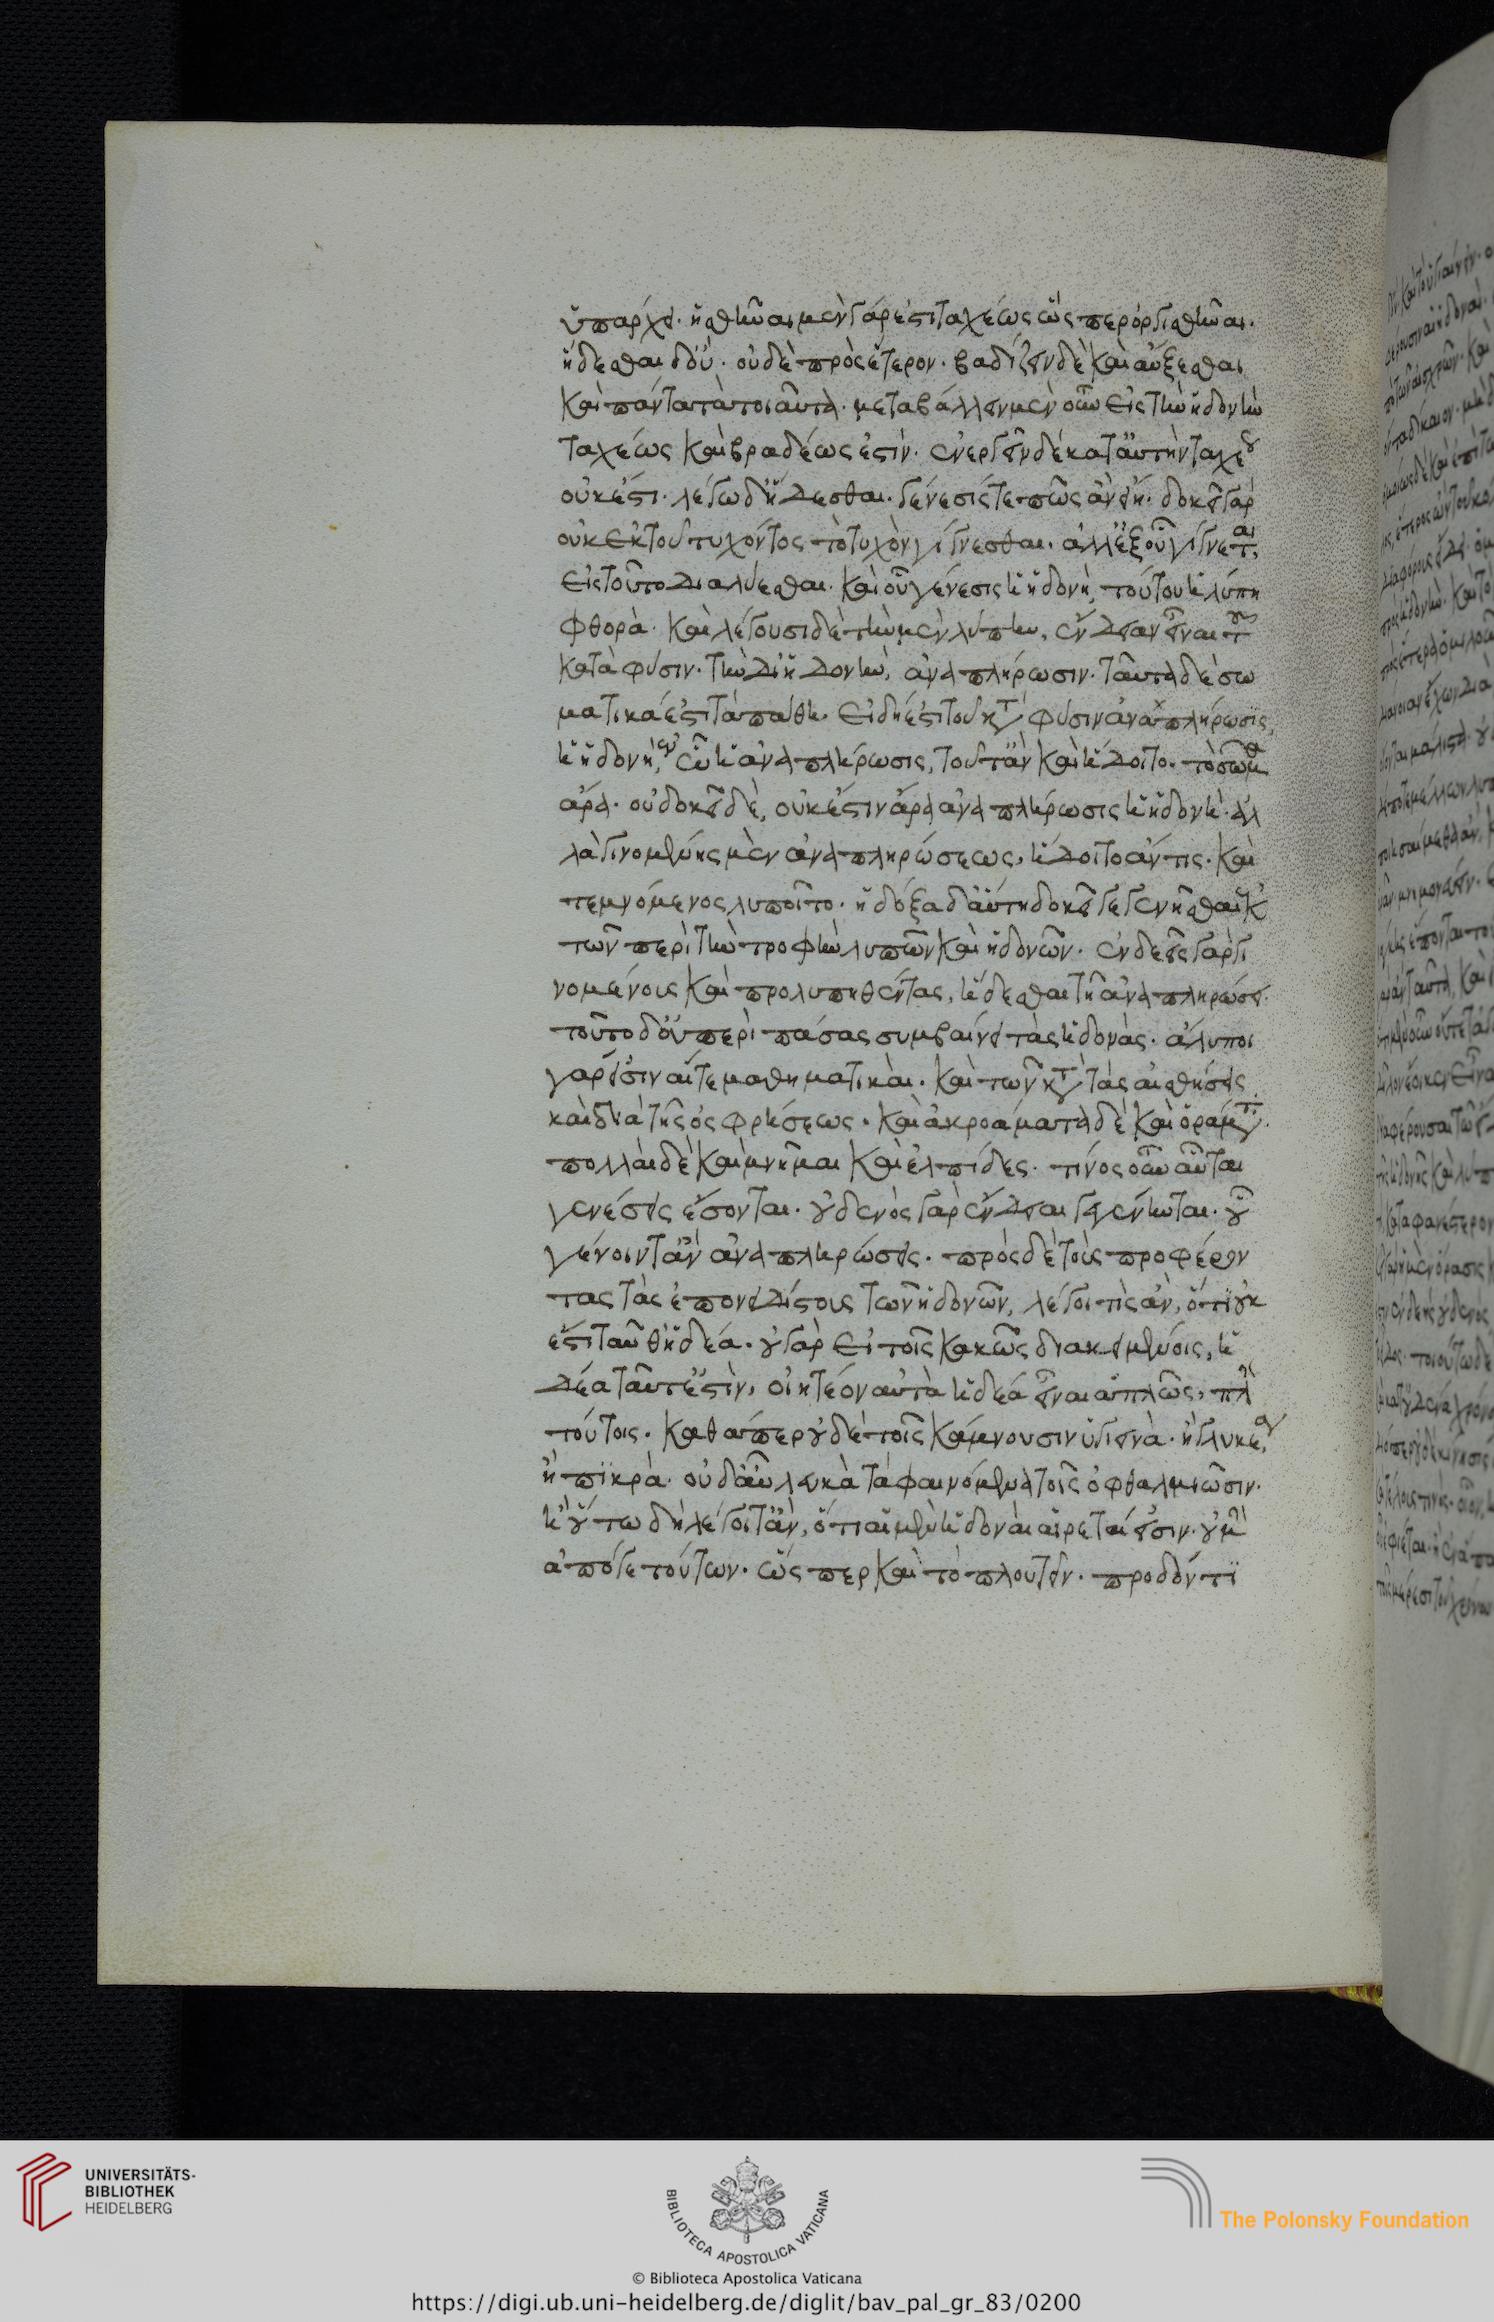 ὑπάρχει· ἡσθῆναι μὲν γάρ ἐστι ταχέως ὥσπερ ὀργισθῆναι·
ἥδεσθαι δ' οὔ· οὐδὲ πρὸς ἕτερον· βαδίζειν δὲ καὶ αὔξεσθαι
καὶ πάντα τὰ τοιαῦτα· μεταβάλλειν μὲν οὖν εἰς τὴν ἡδονὴν
ταχέως καὶ βραδέως ἐστὶν· ἐνεργεῖν δὲ κατ' αὐτὴν ταχέ
οὐκ ἔστι· λέγω δ' ἥδεσθαι· γένεσίς τε πῶς ἂν εἴη· δοκεῖ γὰρ
οὐκ ἐκ τοῦ τυχόντος τὸ τυχὸν γίγνεσθαι· ἀλλ' ἐξ οὗ γίγνεται,
εἰς τοῦτο διαλύεσθαι· καὶ οὗ γένεσις ἡ ἡδονὴ, τούτου ἡ λύπη
φθορὰ· καὶ λέγουσι δὲ τὴν μὲν λύπην, ἔνδειαν εἶναι τοῦ
κατὰ φύσιν· τὴν δὲ ἡδονὴν, ἀναπλήρωσιν· ταῦτα δὲ σω
ματικά ἐστι τὰ πάθη· εἰ δή ἐστι τοῦ κατὰ φύσιν ἀναπλήρωσις,
ἡ ἡδονή, ἐν ᾧ ἡ ἀναπλήρωσις, τοῦτ' ἂν καὶ ἥδοιτο· τὸ σῶμα
ἄρα· οὐ δοκεῖ δὲ, οὐκ ἔστιν ἄρα ἀναπλήρωσις ἡ ἡδονὴ· ἀλ
λὰ γινομένης μὲν ἀναπληρώσεως, ἥδοιτο ἄν τις· καὶ
τεμνόμενος λυποῖτο· ἡ δόξα δ' αὕτη δοκεῖ γεγενῆσθαι ἐκ
τῶν περὶ τὴν τροφὴν λυπῶν καὶ ἡδονῶν· ἐνδεεῖς γὰρ γι
νομένους καὶ προλυπηθέντας, ἥδεσθαι τῇ ἀναπληρώσει·
τοῦτο δ' οὐ περὶ πάσας συμβαίνει τὰς ἡδονὰς· ἄλυποι
γάρ εἰσιν αἵ τε μαθηματικαὶ· καὶ τῶν κατὰ τὰς αἰσθήσεις
καὶ διὰ τῆς ὀσφρήσεως· καὶ ἀκροάματα δὲ καὶ ὁράματα·
πολλαὶ δὲ καὶ μνῆμαι καὶ ἐλπίδες· τίνος οὖν αὗται
γενέσεις ἔσονται· οὐδενὸς γὰρ ἔνδειαι γεγένηνται· οὗ
γένοιντ' ἂν ἀναπληρώσεις· πρὸς δὲ τοὺς προφέρον
τας τὰς ἐπονειδίστους τῶν ἡδονῶν, λέγοι τὶς ἂν, ὅτι οὐκ
ἔστι ταῦθ' ἡδέα· οὐ γὰρ εἰ τοῖς κακῶς διακειμένοις, ἡ
δέα ταῦτ' ἐστὶν, οἰητέον αὐτὰ ἡδέα εἶναι ἁπλῶς, πλὴν
τούτοις· καθάπερ οὐδὲ τοῖς κάμνουσιν ὑγιεινὰ· ἢ γλυκέα,
ἢ πικρὰ· οὐδ' αὖ λευκὰ τὰ φαινόμενα τοῖς ὀφθαλμιῶσιν·
ἢ οὕτω δὴ λέγοιτ' ἂν, ὅτι αἱ μὲν ἡδοναὶ αἱρεταί εἰσιν· οὐ μὴν
ἀπό γε τούτων· ὥσπερ καὶ τὸ πλουτεῖν· προδόντι
UNIVERSITÄTS-
BIBLIOTHEK
HEIDELBERG
BIBLIOTECA APOSTOLICA VATICANA
The Polonsky Foundation
© Biblioteca Apostolica Vaticana
https://digi.ub.uni-heidelberg.de/diglit/bav_pal_gr_83/0200